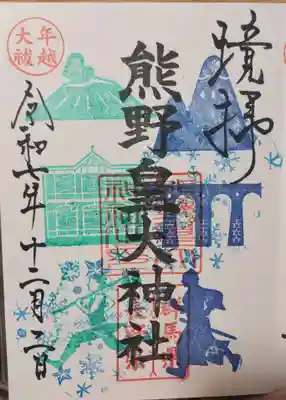 熊野皇大神社
群馬県
年越
大祓
令和七年十二月二日